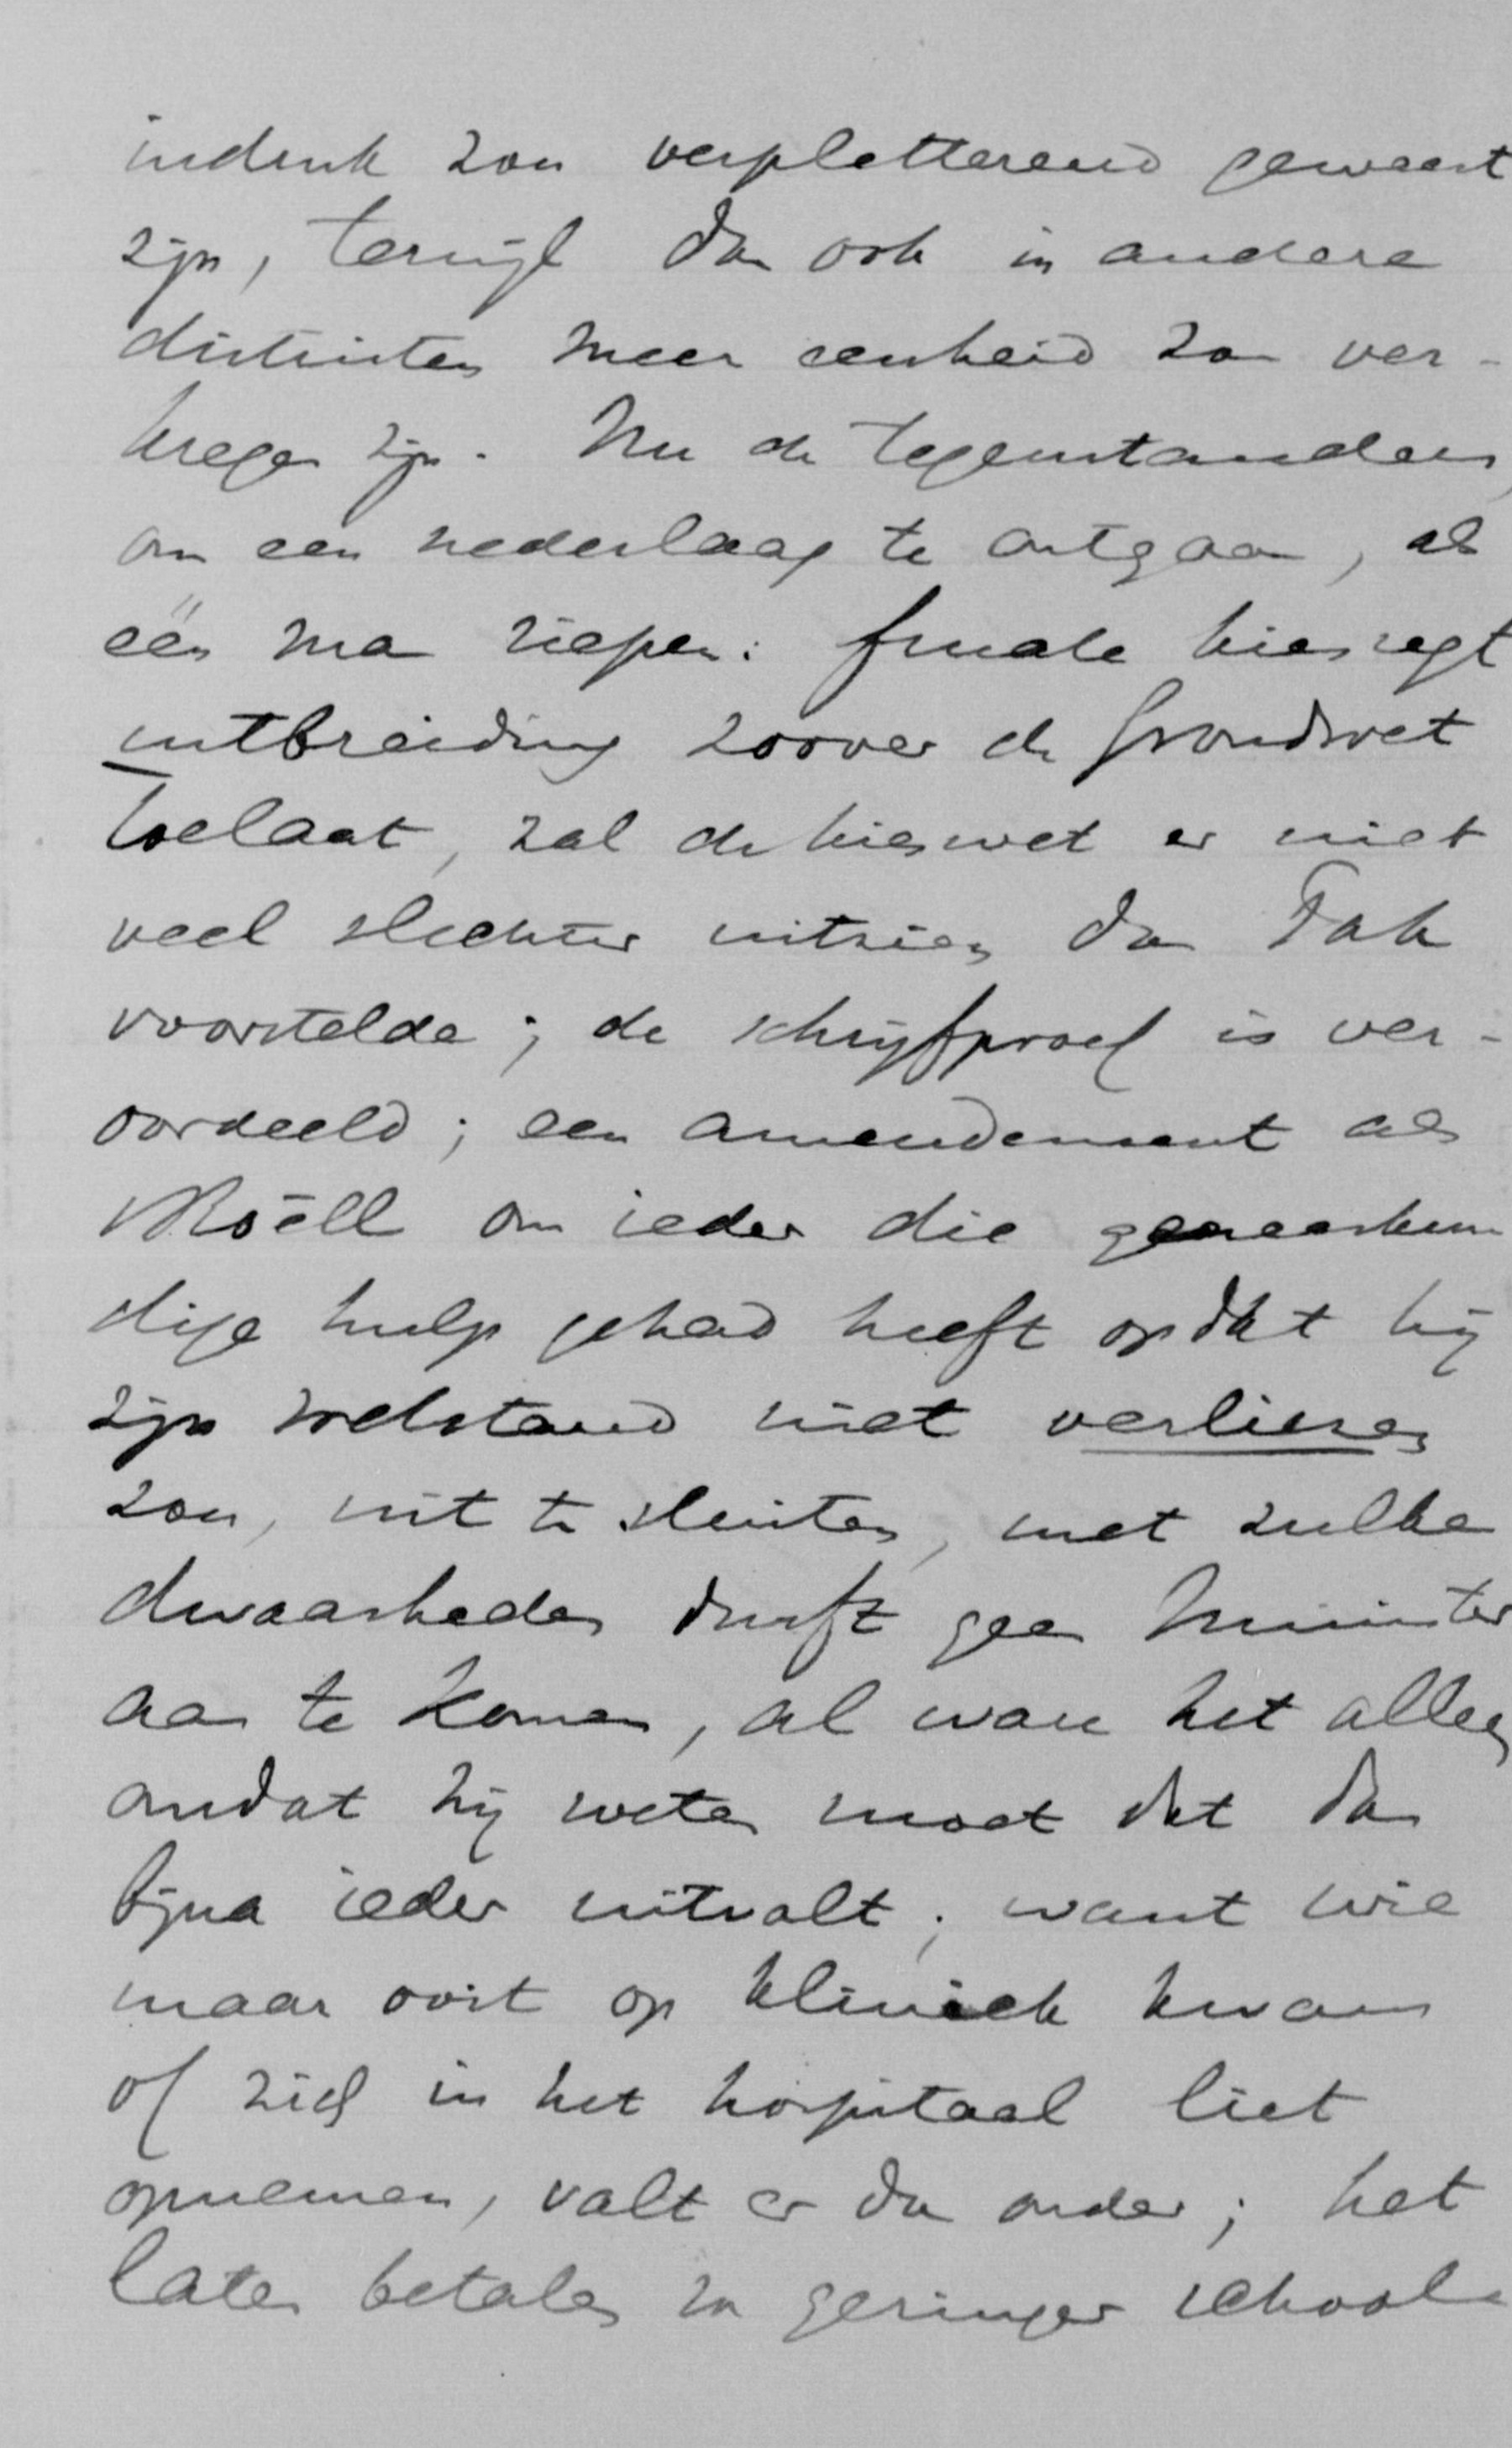 indruk zou verpletterend geweest
zijn, terwijl dan ook in andere
districten meer eenheid zou ver-
kregen zijn. Nu de tegenstanders,
om een nederlaag te ontgaan, als
één man riepen: finale kiesregt
uitbreiding zoover de Grondwet
toelaat, zal de kieswet er niet
veel slechter uitzien dan Tak
voorstelde; de schrijfproef is ver-
oordeeld; een amendement als
Röell om ieder die geneeskun
dige hulp gehad heeft opdat hij
zijn welstand niet verliezen
zou, uit te sluiten, met zulke
dwaasheden durft geen Minister
aan te komen, al ware het alleen
omdat hij weten moet dat dan
bijna ieder uitvalt; want wie
maar ooit op kliniek kwam
of zich in het hospitaal liet
opnemen, valt er dan onder; het
laten betalen van geringer school-